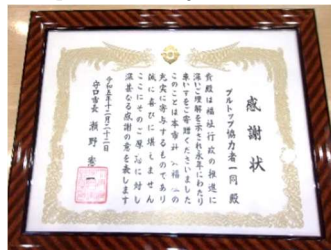 感謝状
プルトップ協力者一同 殿
貴殿は福祉行政の推進に
深いご理解を示され永年にわたり
車いすをご寄贈くださいました
このことは本市社 福祉の
充実に寄与するものであり
誠に喜びに堪えません
ここにそのご厚 に対し
深甚なる感謝の意を表します
令和五年十二月二十二日
守口市長 瀬野憲一